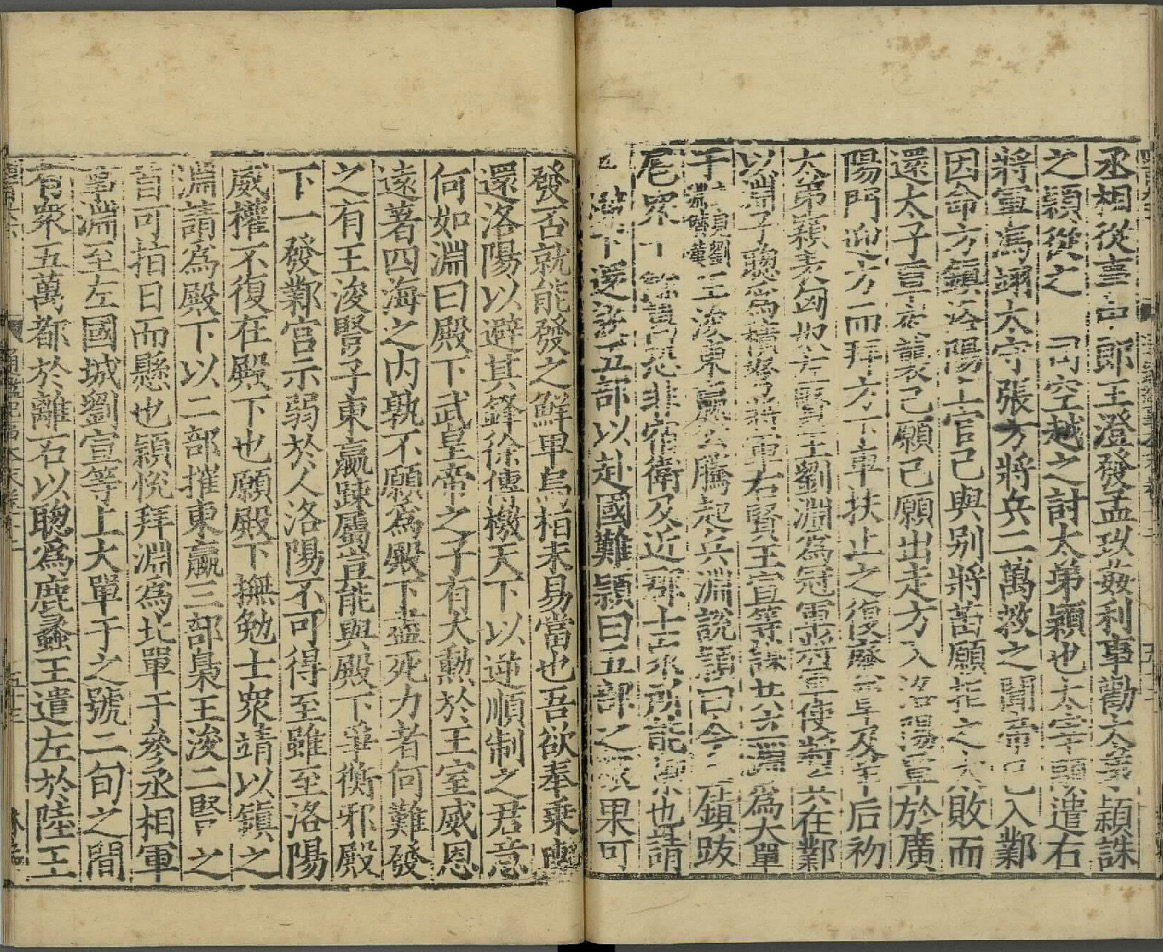 丞相從事中郎王澄發孟玖姦利事勸太弟穎誅
之穎從之　司空越之討太弟穎也太宰顒遣右
將軍馮翊太守張方將兵二萬救之聞帝已入鄴
因命方鎮洛陽上官己與別將苗願拒之大敗而
還太子覃夜襲己願己願出走方入洛陽覃於廣
陽門迎方而拜方下車扶止之復廢覃及羊后初
太弟穎表匈奴左賢王劉淵為冠軍將軍使將兵在鄴
以淵子聰為積弩將軍右賢王宣等謀共推淵為大單
于
王浚東嬴公騰起兵淵說穎曰今二鎮跋
尾眾十餘萬恐非宿衛及近郡士眾所能禦也請
為殿下還說五部以赴國難穎曰五部之眾果可
發否就能發之鮮卑烏桓未易當也吾欲奉乗輿
還洛陽以避其鋒徐傳檄天下以逆順制之君意
何如淵曰殿下武皇帝之子有大勳於王室威恩
遠著四海之內孰不願為殿下盡死力者何難發
之有王浚豎子東嬴踈屬豈能與殿下爭衡邪殿
下一發鄴宮示弱於人洛陽不可得至雖至洛陽
威權不復在殿下也願殿下撫勉士眾靖以鎮之
淵請為殿下以二部摧東嬴三部梟王浚二豎之
首可指日而懸也穎悅拜淵為北單于參丞相軍
事淵至左國城劉宣等上大單于之號二旬之間
有眾五萬都於離石以聰為鹿蠡王遣左於陸王